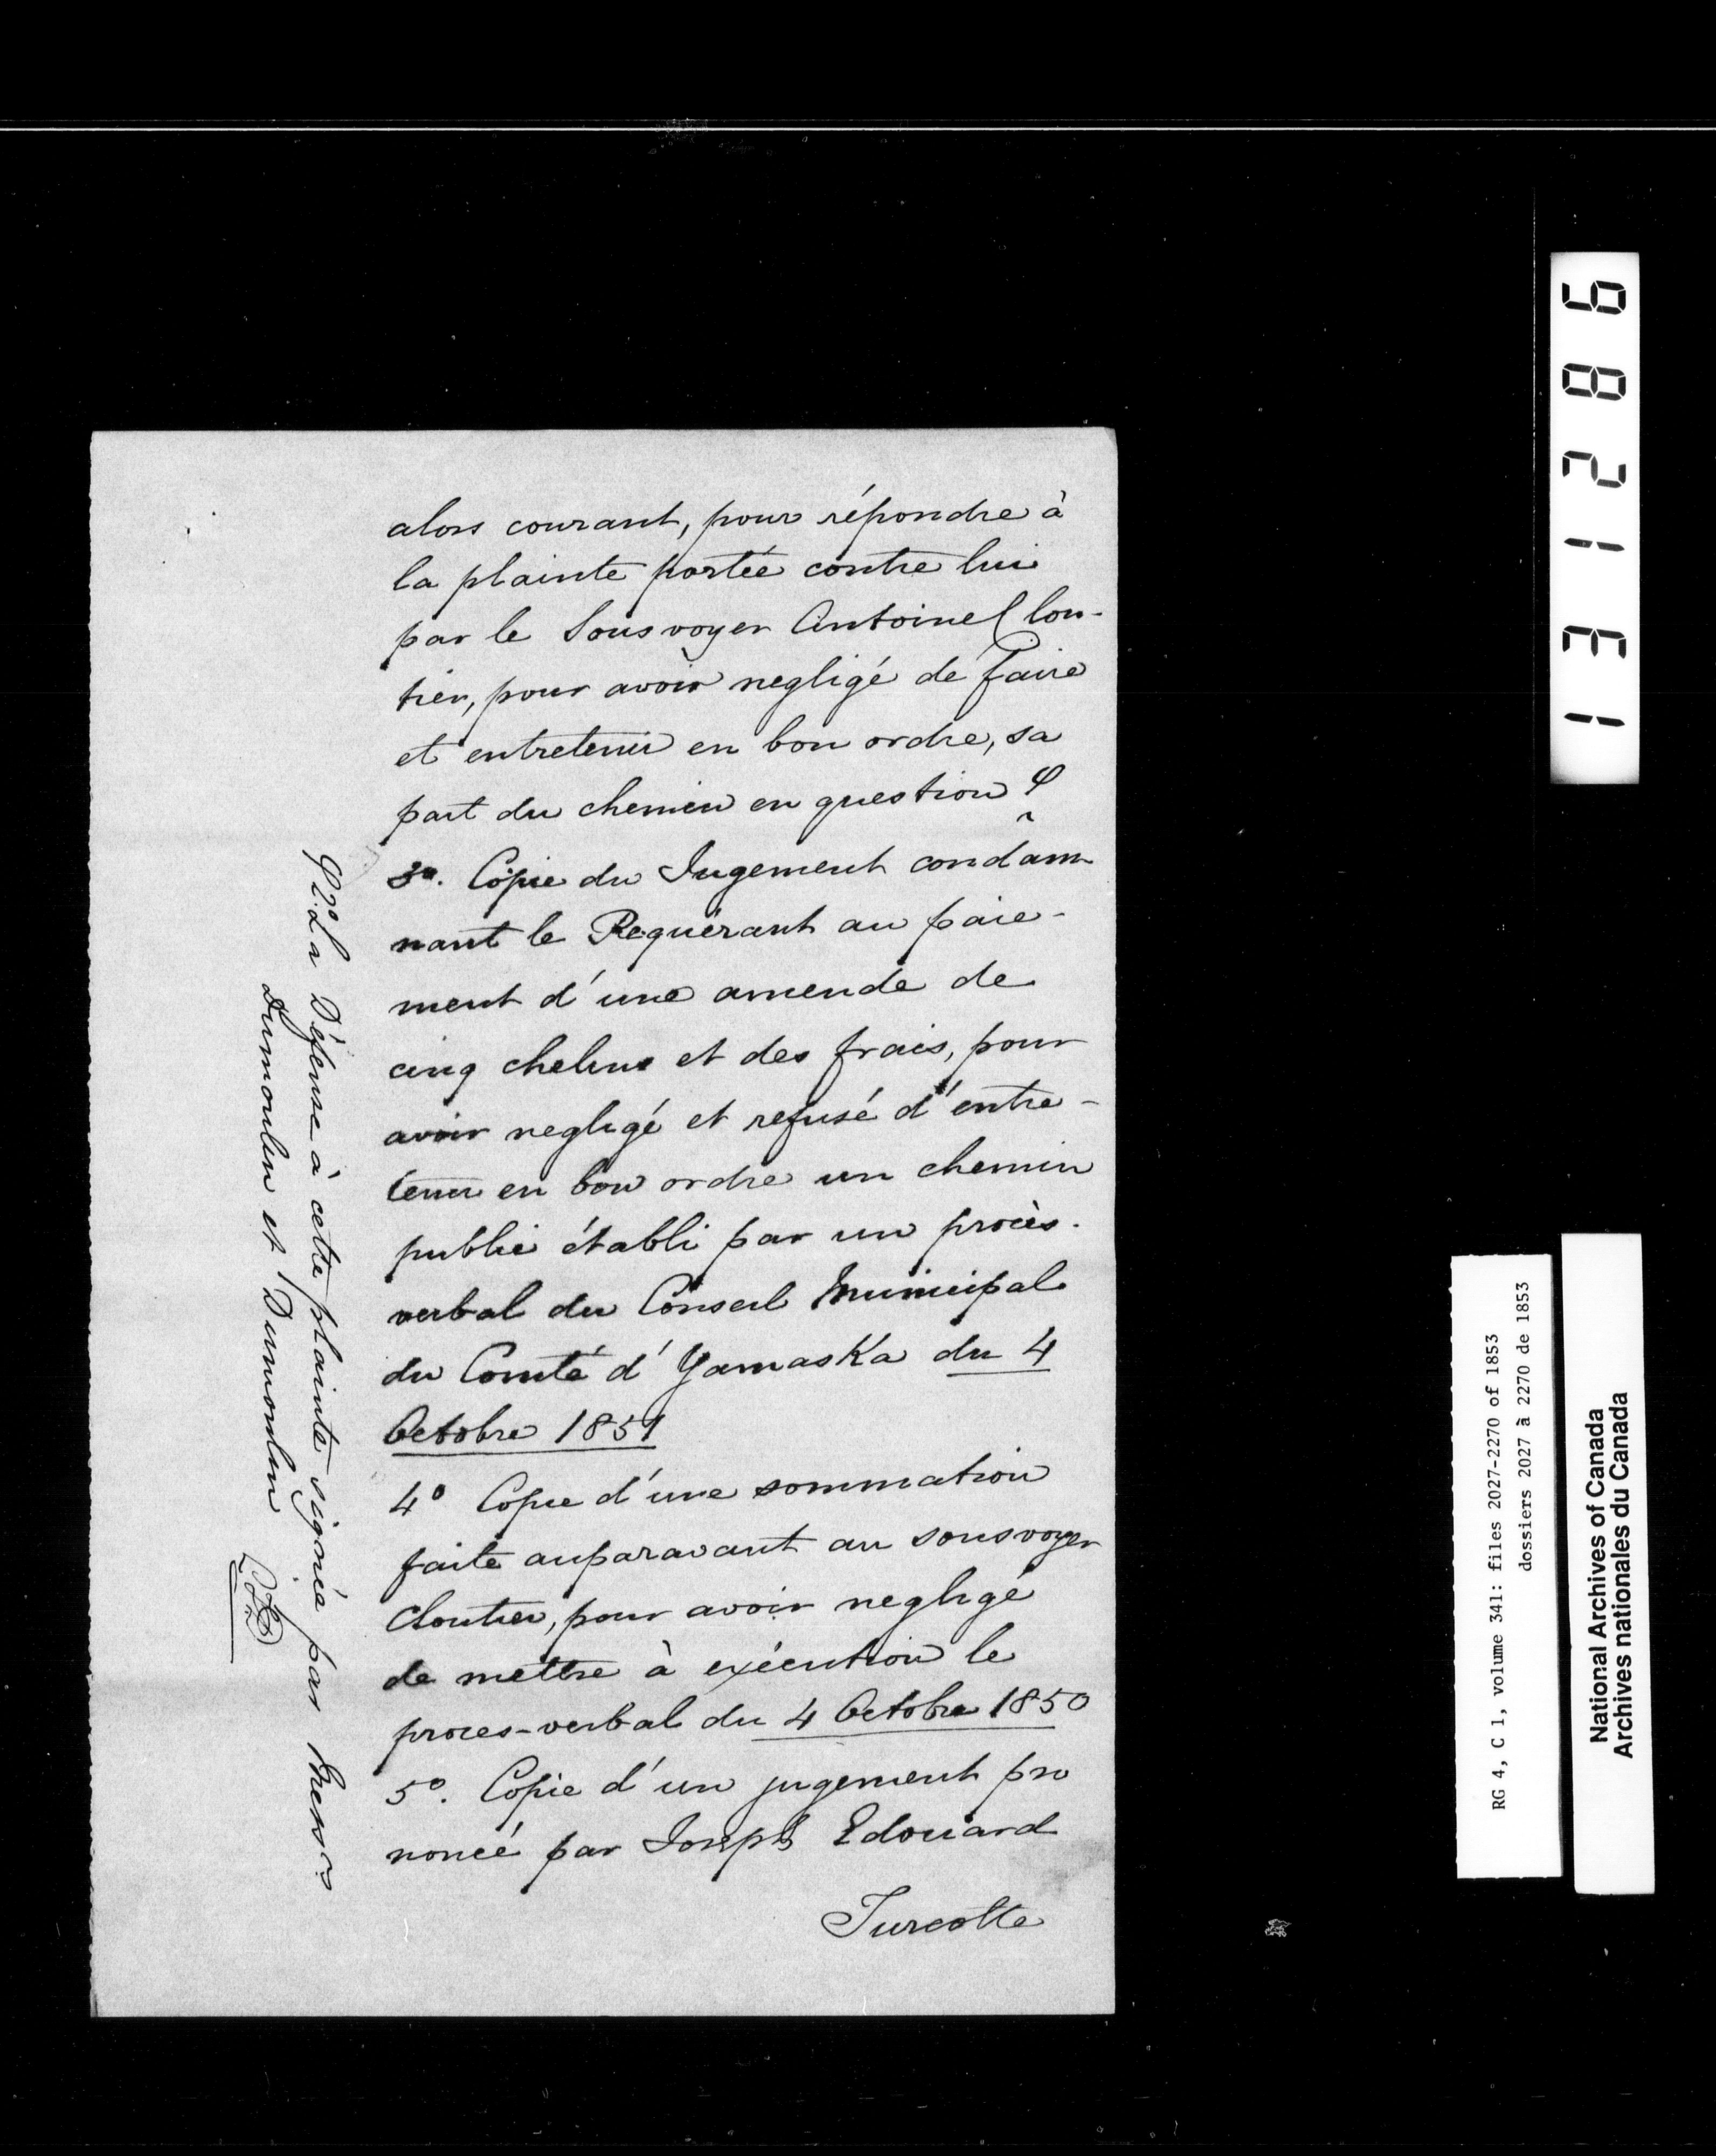 alors courant, pour répondre à
la plainte portée contre lui
par le Sousvoyer Antoine Clou-
tier, pour avoir negligé de faire
et entretenir en bon ordre, sa
part du chemin en question φ
3º. Copie du Jugement condam
nant le Requérant au paie-
ment d'une amende de
cinq chelins et des frais, pour
avoir negligé et refusé d'entre-
tenir en bon ordre un chemin
public établi par un procès-
verbal du Conseil Municipal
du Comté d'Yamaska du 4
Octobre 1851
4º Copie d'une sommation
faite auparavant au sousvoyer
Cloutier, pour avoir negligé
de mettre à exécution le
proces-verbal du 4 Octobre 1850
5º. Copie d'un jugement pro
noncé par Joseph Edouard
Turcotte
φ 2º. La Défense à cette plainte signée par Messrs
Dumoulin et Dumoulin
131286
RG 4, C 1, volume 341: files 2027-2270 of 1853
dossiers 2027 à 2270 de 1853
National Archives of Canada
Archives nationales du Canada